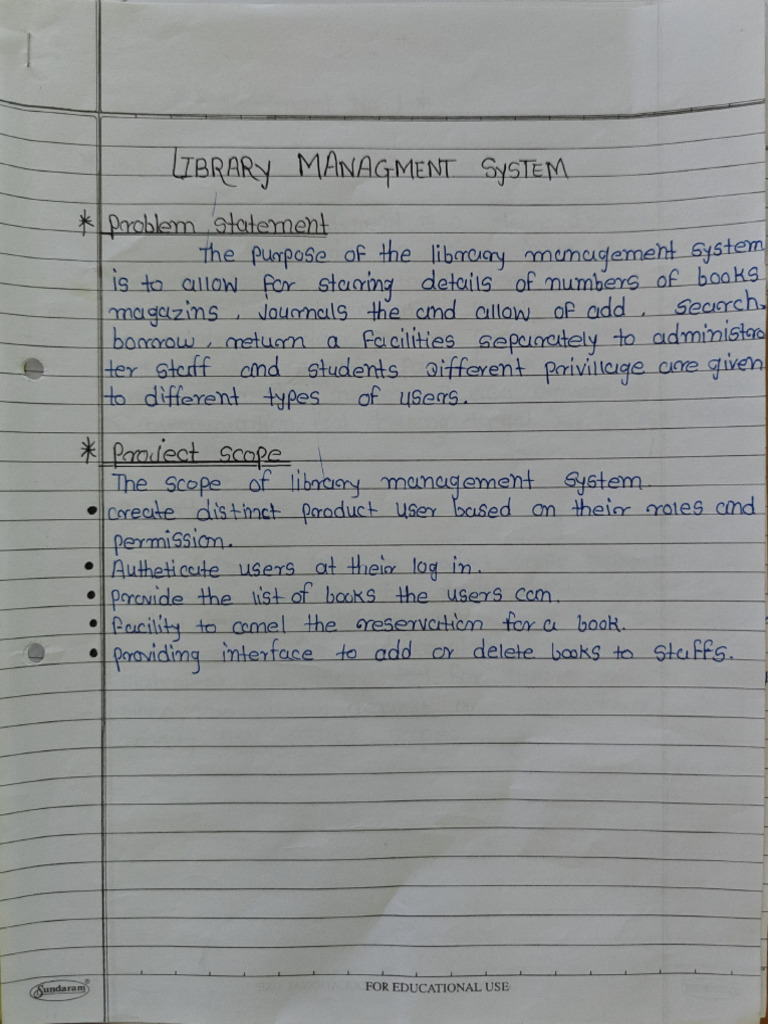 LIBRARY MANAGMENT SYSTEM
* Problem statement
The purpose of the library management system
is to allow for storing details of numbers of books
magazins, Journals the and allow of add, search,
borrow, return a facilities separately to administra
ter staff and students Different privillage are given
to different types of users.
* Project scope
The scope of library management system.
• create distinct product user based on their roles and
permission.
• Autheticate users at their log in.
• provide the list of books the users can.
• facility to camel the reservation for a book.
• providing interface to add or delete books to staffs.
Sundaram®
FOR EDUCATIONAL USE